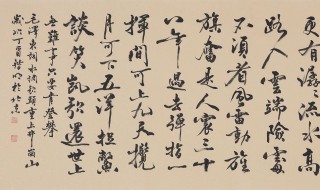 更有潺潺流水高
路入雲端險處
不須看風雷動旌
旗奮是人寰三十
八年過去彈指一
揮間可上九天攬
月可下五洋捉鱉
談笑凱歌還世上
無難事只要肯登攀
毛澤東詞水調歌頭重上井岡山
歲次丁酉於北京